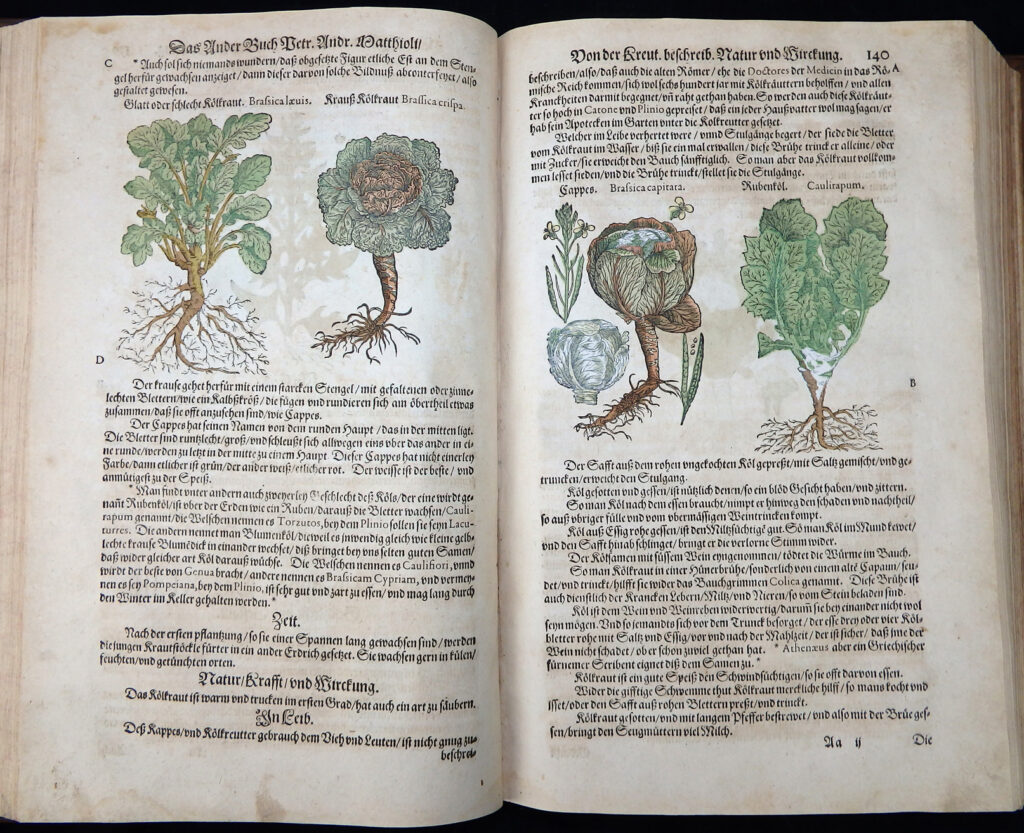 Das Ander Buch Petr. Andr. Matthioli/
C
* Auch sol sich niemands wundern/daß obgesetzte Figur etliche Est an dem Sten-
gel herfür gewachsen anzeiget/dann dieser darvon solche Bildnuß abconterfeyet/also
gestaltet gewesen.
Glatt oder schlecht Kölkraut. Brassica læuis. Krauß Kölkraut Brassica crispa.
D
Der krause gehet herfür mit einem starcken Stengel/mit gefaltenen oder zinne-
lechten Blettern/wie ein Kalbßkröß/die fügen und rundieren sich am öbertheil etwas
zusammen/daß sie offt anzusehen sind/wie Cappes.
Der Cappes hat seinen Namen von dem runden Haupt/das in der mitten ligt.
Die Bletter sind runtzlecht/groß/vnd schleußt sich allwegen eins vber das ander in ei-
ne runde/werden zu letzt in der mitte zu einem Haupt. Dieser Cappes hat nicht einerley
Farbe/dann etlicher ist grün/der ander weiß/etlicher rot. Der weisse ist der beste/vnd
anmütigest zu der Speiß.
* Man findt vnter andern auch zweyerley Geschlecht deß Köls/der eine wirdt ge-
nañt Rubenköl/ist vber der Erden wie ein Ruben/darauß die Bletter wachsen/Cauli-
rapum genannt/die Welschen nennen es Torzutos, bey dem Plinio sollen sie seyn Lacu-
turres. Die andern nennet man Blumenköl/dieweil es inwendig gleich wie kleine gelb-
lechte krause Blumẽ dick in einander wechset/diß bringet bey vns selten guten Samen/
daß wider gleicher art Köl darauß wüchse. Die Welschen nennen es Caulifiori, vnnd
wirdt der beste von Genua bracht/andere nennen es Brassicam Cypriam, vnd vermey-
nen es sey Pompeiana, bey dem Plinio, ist sehr gut vnd zart zu essen/vnd mag lang durch
den Winter im Keller gehalten werden. *
Zeit.
Nach der ersten pflantzung/so sie einer Spannen lang gewachsen sind/werden
die jungen Krautstöckle fürter in ein ander Erdrich gesetzet. Sie wachsen gern in külen/
feuchten/vnd getünchten orten.
Natur/Krafft/vnd Wirckung.
Das Kölkraut ist warm vnd trucken im ersten Grad/hat auch ein art zu säubern.
In Leib.
Deß Kappes/vnd Kölkreutter gebrauch dem Vieh vnd Leuten/ist nicht gnug zu-
beschrei-
Von der Kreut. beschreib. Natur vnd Wirckung. 140
A
beschreiben/also/daß auch die alten Römer/ehe die Doctores der Medicin in das Rö-
mische Reich kommen/sich wol sechs hundert jar mit Kölkräuttern beholffen/vnd allen
Kranckheiten darmit begegnet/vñ raht gethan haben. So werden auch diese Kölkräut-
ter so hoch in Catone vnd Plinio gepreiset/daß ein jeder Haußvatter wol mag sagen/er
hab sein Apotecken im Garten vnter die Kölkreutter gesetzet.
Welcher im Leibe verhertet were/vnnd Stulgänge begert/der siede die Bletter
vom Kölkraut im Wasser/biß sie ein mal erwallen/diese Brühe trinck er alleine/oder
mit Zucker/sie erweicht den Bauch sänfftiglich. So man aber das Kölkraut vollkom-
men lesset sieden/vnd die Brühe trinckt/stellet sie die Stulgänge.
Cappes. Brassica capitata. Rubenköl. Caulirapum.
B
Der Safft auß dem rohen vngekochten Köl gepreßt/mit Saltz gemischt/vnd ge-
truncken/erweicht den Stulgang.
Köl gesotten vnd gessen/ist nützlich denen/so ein blöd Gesicht haben/vnd zittern.
So man Köl nach dem essen braucht/nimpt er hinweg den schaden vnd nachtheil/
so auß vbriger fülle vnd vom vbermässigen Weintrincken kompt.
Köl auß Essig rohe gessen/ist den Miltzsüchtigẽ gut. So man Köl im Mund kewet/
vnd den Safft hinab schlinget/bringt er die verlorne Stimm wider.
Der Kölsamen mit süssem Wein eyngenommen/tödtet die Würme im Bauch.
So man Kölkraut in einer Hünerbrühe/sonderlich von einem altẽ Capaun/seu-
det/vnd trinckt/hilfft sie wider das Bauchgrimmen Colica genannt. Diese Brühe ist
auch dienstlich der Krancken Lebern/Miltz/vnd Nieren/so vom Stein beladen sind.
Köl ist dem Wein vnd Weinreben widerwertig/darumb sie bey einander nicht wol
seyn mögen. Vnd so jemandts sich vor dem Trunck besorget/der esse drey oder vier Köl-
bletter rohe mit Saltz vnd Essig/vor vnd nach der Mahlzeit/der ist sicher/daß jme der
Wein nicht schadet/ob er schon zuviel gethan hat. * Athenæus aber ein Griechischer
fürnemer Scribent eignet diß dem Samen zu. *
Kölkraut ist ein gute Speiß den Schwindsüchtigen/so sie offt darvon essen.
Wider die gifftige Schwemme thut Kölkraut merckliche hilff/so mans kocht vnd
isset/oder den Safft auß rohen Blettern preßt/vnd trinckt.
Kölkraut gesotten/vnd mit langem Pfeffer bestrewet/vnd also mit der Brüe ges-
sen/bringt den Seugmüttern viel Milch.
Aa ij Die